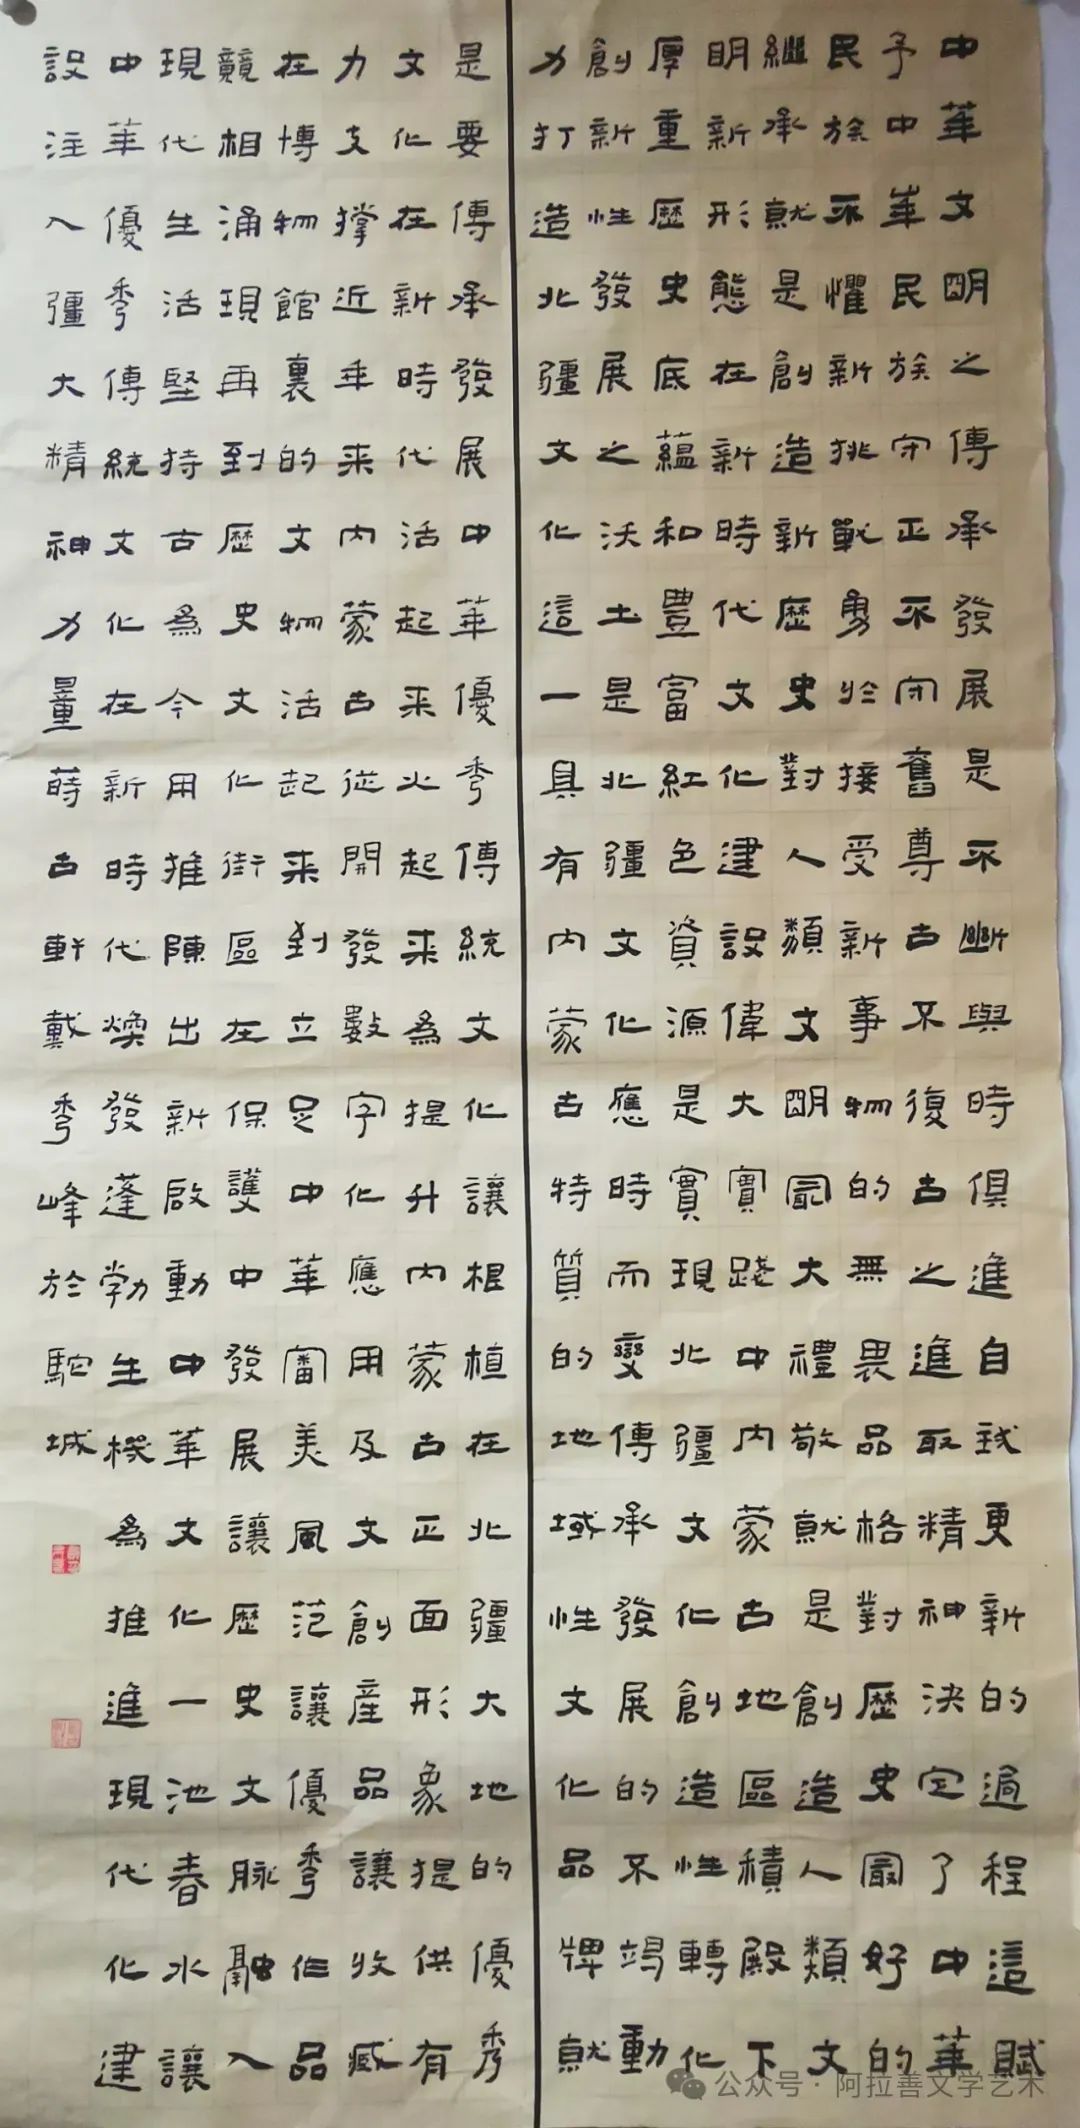 中華文明之傳承發展是不斷與時俱進自我更新的過程這賦
予中華民族守正不守舊尊古不復古之進取精神決定了中華
民族不懼新挑戰勇於接受新事物的無畏品格對歷史最好的
繼承就是創造新歷史對人類文明最大禮敬就是創造人類文
明新形態在新時代文化建設偉大實踐中內蒙古地區積殿下
厚重歷史底蘊和豐富紅色資源是實現北疆文化創造性轉化
創新性發展之沃土是北疆文化應時而變傳承發展的不竭動
力打造北疆文化這一具有內蒙古特質的地域性文化品牌就
是要傳承發展中華優秀傳統文化讓根植在北疆大地的優秀
文化在新時代活起来火起来為提升內蒙古正面形象提供有
力支撐近年来內蒙古從開發數字化應用及文創產品讓收藏
在博物館裏的文物活起来到立足中華審美風范讓優秀作品
競相涌現再到歷史文化街區在保護中發展讓歷史文脉融入
現代生活堅持古為今用推陳出新啟動中華文化一池春水讓
中華優秀傳統文化在新時代煥發蓬勃生機為推進現代化建
設注入彊大精神力量蒔古軒戴秀峰於駝城
公众号·阿拉善文学艺术